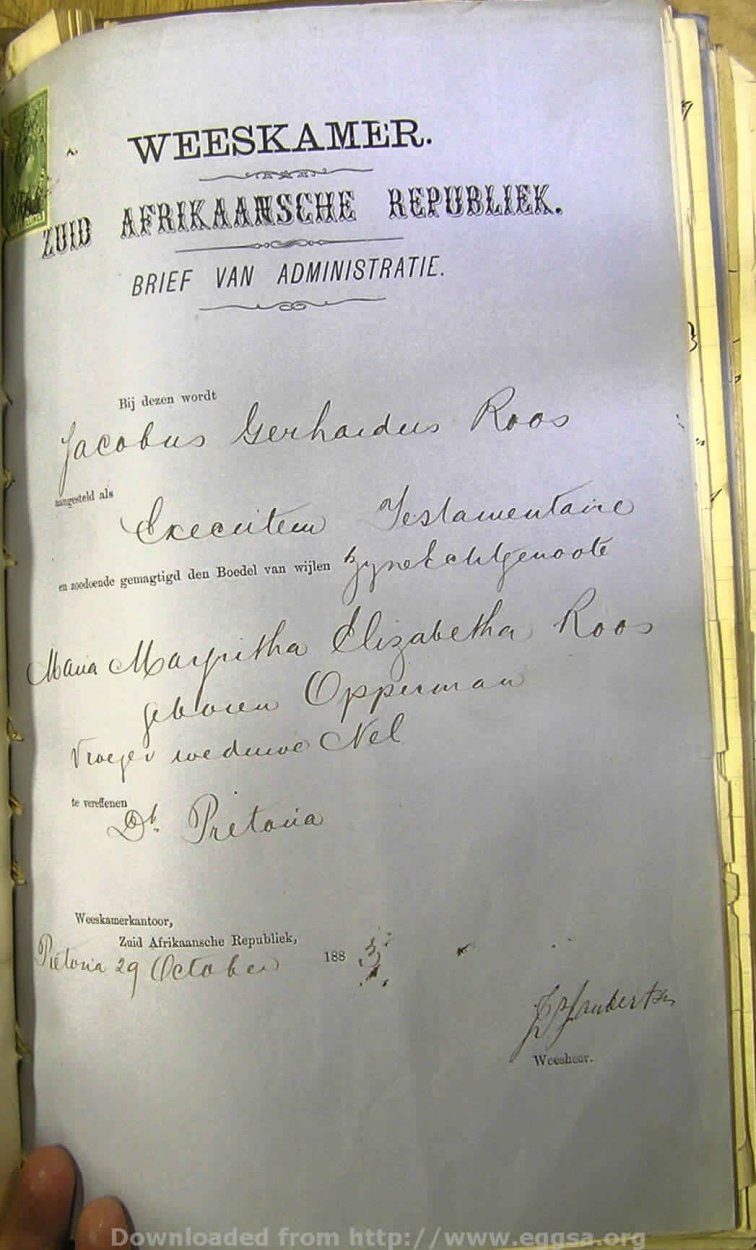 WEESKAMER.
ZUID AFRIKAANSCHE REPUBLIEK.
BRIEF VAN ADMINISTRATIE.
Bij dezen wordt
Jacobus Gerhardus Roos
aangesteld als
Executeur Testamentaire
en zoodoende gemagtigd den Boedel van wijlen zyne Echtgenoote
Maria Margritha Elizabetha Roos
geboren Opperman
Vroeger weduwe Nel
te vereffenen
Dt. Pretoria
Weeskamerkantoor,
Zuid Afrikaansche Republiek,
Pretoria 29 October 188 3
Weesheer.
Downloaded from http://www.eggsa.org